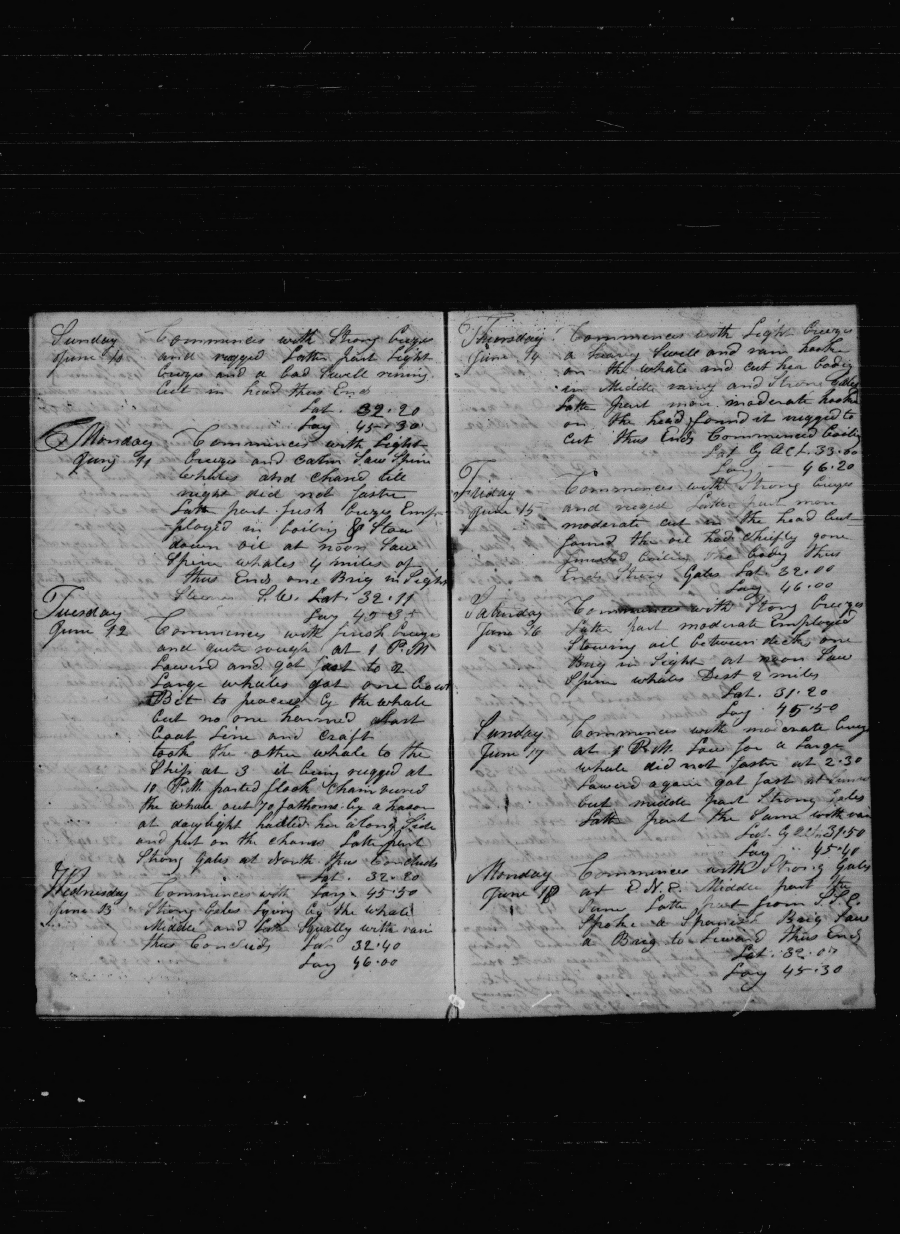 Sunday Commences with Strong breezes
June 10 and rugged Latter part Light
breezes and a bad Swell runing
Cut in head thus Ends
Lat. 32.20
Long 45.30
Monday Commences with Light
June 11 breezes and calm Saw Sperm
Whales and Chased till
night did not fasten
Latter part fresh breezes Emp-
-ployed in boiling & Stow
down oil at noon Saw
Sperm whales 4 miles of
thus Ends one Brig in Sight
S.W. Lat. 32.11
Long 45.35
Tuesday Commences with fresh breezes
June 12 and quite rough at 1 P.M
Lowerd and got fast to 2
Large whales got one boat
Bit to peaces by the whale
but no one harmed Lost
boat Line and craft
took the other whale to the
Ship at 3 it being rugged at
10 P.M parted fluck Chain
the whale out 70 fathoms by a
at daylight halled her along Side
and put on the chains Latter part
Strong Gales at North thus Concluds
Lat. 32.20
Wednesday Commences with Long. 45.50
June 13 Strong Gales Lying by the whale
Middle and Latter Squally with rain
thus Concluds Lat 32.40
Long 46.00
Thursday Commences with Light breezes
June 14 a heavy Swell and rain
on the whale and cut her body
in Middle rainy and Strong Gales
Latter part more moderate hooked
on the head found it rugged to
cut thus Ends Commenced boiling
Lat By Act. 33.00
Long 46.20
Friday Commences with Strong breezes
June 15 and rugged Latter part more
moderate cut in the head but
found the oil had chiefly gone
finished boiling the body thus
Ends Strong Gales Lat. 32.00
Long 46.00
Saturday Commences with Strong breezes
June 16 Latter part moderate Employed
Stowing oil between decks one
Brig in Sight at noon Saw
Sperm whales Dist 2 miles
Lat. 31.20
Long. 45.50
Sunday Commences with moderate breezes
June 17 at 1 P.M. Low for a Large
whale did not fasten at 2.30
Lowerd again got fast
but middle part Strong Gales
Latter part the Same with rain
Lat. By Act. 31.50
Long 45.40
Monday Commences with Strong Gales
June 18 at E.N.E. Middle part the
Same Latter part from S.S.E.
Spoke a Spanish Brig Saw
a Brig to Leward thus Ends
Lat. 32.07
Long 45.30